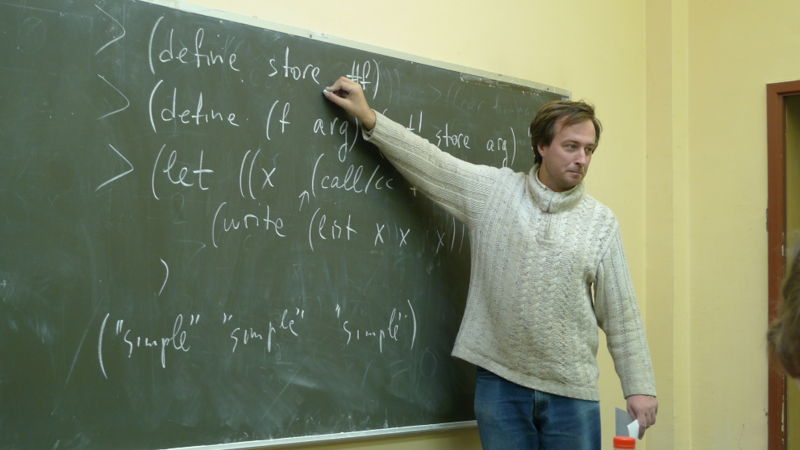 > (define store #f)
> (define (f arg) store arg)
> (let ((x (call/cc
(write (list x x x))
)
("simple" "simple" "simple")